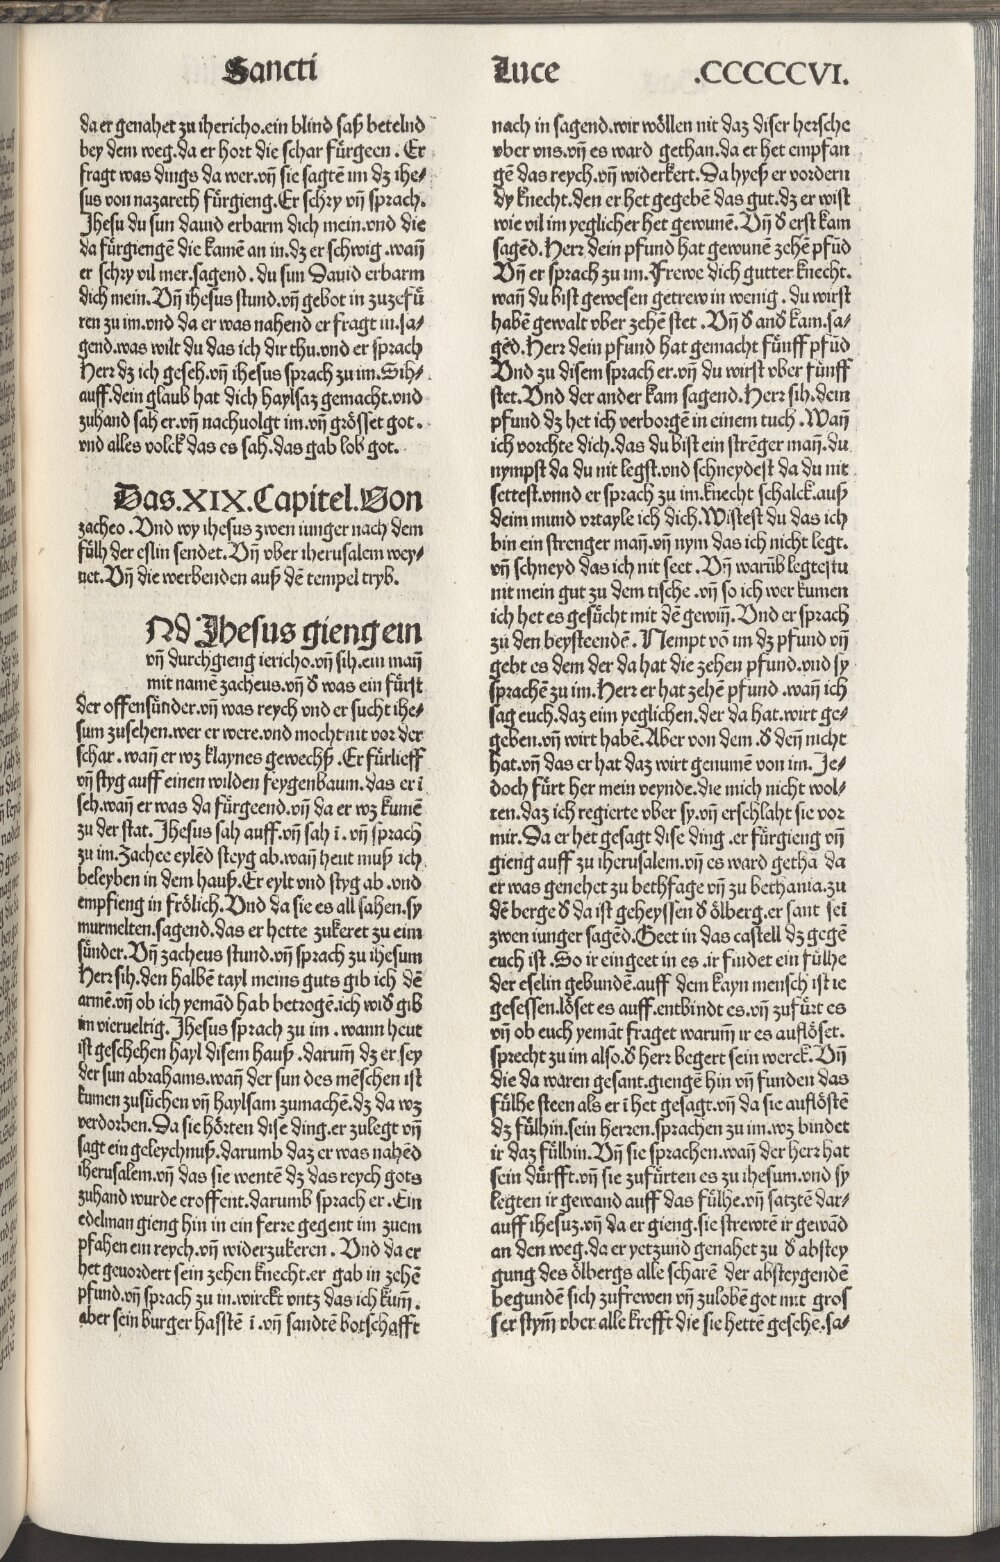 Sancti
Luce
.CCCCCVI.
da er genahet zu ihericho.ein blind saß betelnd
bey dem weg.da er hort die schar fürgeen. Er
fragt was dings da wer.vn̄ sie sagtē im dz ihe/
sus von nazareth fürgieng.Er schry vn̄ sprach.
Jhesu du sun dauid erbarm dich mein.vnd die
da fürgiengē die kamē an in.dz er schwig .wan̄
er schry vil mer.sagend. du sun Dauid erbarm
dich mein.Vn̄ ihesus stund.vn̄ gebot in zuzefü
ren zu im.vnd da er was nahend er fragt in.sa/
gend.was wilt du das ich dir thu.vnd er sprach
Herr dz ich geseh.vn̄ ihesus sprach zu im.Sih/
auff.dein glaub hat dich haylsaz gemacht.vnd
zuhand sah er.vn̄ nachuolgt im.vn̄ grösset got.
vnd alles volck das es sah.das gab lob got.
Das.XIX.Capitel.Von
zacheo .Vnd wy ihesus zwen iunger nach dem
fülh der eslin sendet.Vn̄ vber iherusalem wey/
net.Vn̄ die werbenden auß dē tempel tryb.
ND Jhesus gieng ein
vn̄ durchgieng iericho.vn̄ sih.ein man̄
mit namē zacheus.vn̄ d̄ was ein fürst
der offensünder.vn̄ was reych vnd er sucht ihe/
sum zusehen.wer er were.vnd mocht nit vor der
schar. wan̄ er wz klaynes gewechß. Er fürlieff
vn̄ styg auff einen wilden feygenbaum.das er ī
seh.wan̄ er was da fürgeend.vn̄ da er wz kumē
zu der stat.Jhesus sah auff.vn̄ sah ī. vn̄ sprach
zu im.Zachee eylēd steyg ab.wan̄ heut muß ich
beleyben in dem hauß.Er eylt vnd styg ab .vnd
empfieng in frölich.Vnd da sie es all sahen.sy
murmelten.sagend.das er hette zukeret zu eim
sünder.Vn̄ zacheus stund.vn̄ sprach zu ihesum
Herr sih.den halbē tayl meins guts gib ich dē
armē.vn̄ ob ich yemād hab betrogē.ich wid̄ gib
im vierueltig.Jhesus sprach zu im. wann heut
ist geschehen hayl disem hauß .darum̄ dz er sey
der sun abrahams.wan̄ der sun des mēschen ist
kumen zusüchen vn̄ haylsam zumachē.dz da wz
verdorben.Da sie hörten dise ding.er zulegt vn̄
sagt ein geleychnuß.darumb daz er was nahēd
iherusalem.vn̄ das sie wentē dz das reych gots
zuhand wurde eroffent.darumb sprach er .Ein
edelman gieng hin in ein ferre gegent im zuem
pfahen ein reych.vn̄ widerzukeren. Vnd da er
het geuordert sein zehen knecht.er gab in zehē
pfund.vn̄ sprach zu in.wirckt vntz das ich kum̄.
aber sein burger hasstē ī.vn̄ sandtē botschafft
nach in sagend.wir wöllen nit daz diser hersche
vber vns.vn̄ es ward gethan.da er het empfan
gē das reych.vn̄ widerkert.Da hyeß er vordern
dy knecht.den er het gegebē das gut.dz er wist
wie vil im yeglicher het gewunē.Vn̄ d̄ erst kam
sagēd.Herr dein pfund hat gewunē zehē pfūd
Vn̄ er sprach zu im.Frewe dich gutter knecht.
wan̄ du bist gewesen getrew in wenig. du wirst
habē gewalt vber zehē stet .Vn̄ d̄ and̄ kam.sa/
gēd.Herr dein pfund hat gemacht fünff pfūd
Vnd zu disem sprach er.vn̄ du wirst vber fünff
stet.Vnd der ander kam sagend.Herr sih.dein
pfund dz het ich verborgē in einem tuch .Wan̄
ich vorchte dich.das du bist ein strēger man̄.du
nympst da du nit legst.vnd schneydest da du nit
settest.vnnd er sprach zu im.knecht schalck.auß
deim mund vrtayle ich dich.Wistest du das ich
bin ein strenger man̄.vn̄ nym das ich nicht legt.
vn̄ schneyd das ich nit seet .Vn̄ warūb legtestu
nit mein gut zu dem tische .vn̄ so ich wer kumen
ich het es gesücht mit dē gewin̄.Vnd er sprach
zu den beysteendē. Nempt vō im dz pfund vn̄
gebt es dem der da hat die zehen pfund.vnd sy
sprachē zu im.Herr er hat zehē pfund .wan̄ ich
sag euch.daz eim yeglichen.der da hat.wirt ge/
geben.vn̄ wirt habē.Aber von dem .d̄ den̄ nicht
hat.vn̄ das er hat daz wirt genumē von im.Je/
doch fürt her mein veynde.die mich nicht wol/
ten.daz ich regierte vber sy.vn̄ erschlaht sie vor
mir.Da er het gesagt dise ding .er fürgieng vn̄
gieng auff zu iherusalem.vn̄ es ward getha da
er was genehet zu bethfage vn̄ zu bethania.zu
dē berge d̄ da ist geheyssen d̄ ölberg.er sant seī
zwen iunger sagēd.Geet in das castell dz gegē
euch ist .So ir eingeet in es .ir findet ein fülhe
der eselin gebundē.auff dem kayn mensch ist ie
gesessen.löset es auff.entbindt es.vn̄ zufürt es
vn̄ ob euch yemāt fraget warum̄ ir es auflöset.
sprecht zu im also.d̄ herr begert sein werck.Vn̄
die da waren gesant.giengē hin vn̄ funden das
fülhe steen als er ī het gesagt.vn̄ da sie auflöstē
dz fülhin.sein herren.sprachen zu im.wz bindet
ir daz fülhin.Vn̄ sie sprachen.wan̄ der herr hat
sein dürfft.vn̄ sie zufürten es zu ihesum.vnd sy
legten ir gewand auff das fülhe.vn̄ satztē dar/
auff ihesuz.vn̄ da er gieng.sie strewtē ir gewād
an den weg.da er yetzund genahet zu d̄ abstey
gung des ölbergs alle scharē der absteygendē
begundē sich zufrewen vn̄ zulobē got mit gros
ser stym̄ vber alle krefft die sie hettē gesehē.sa/